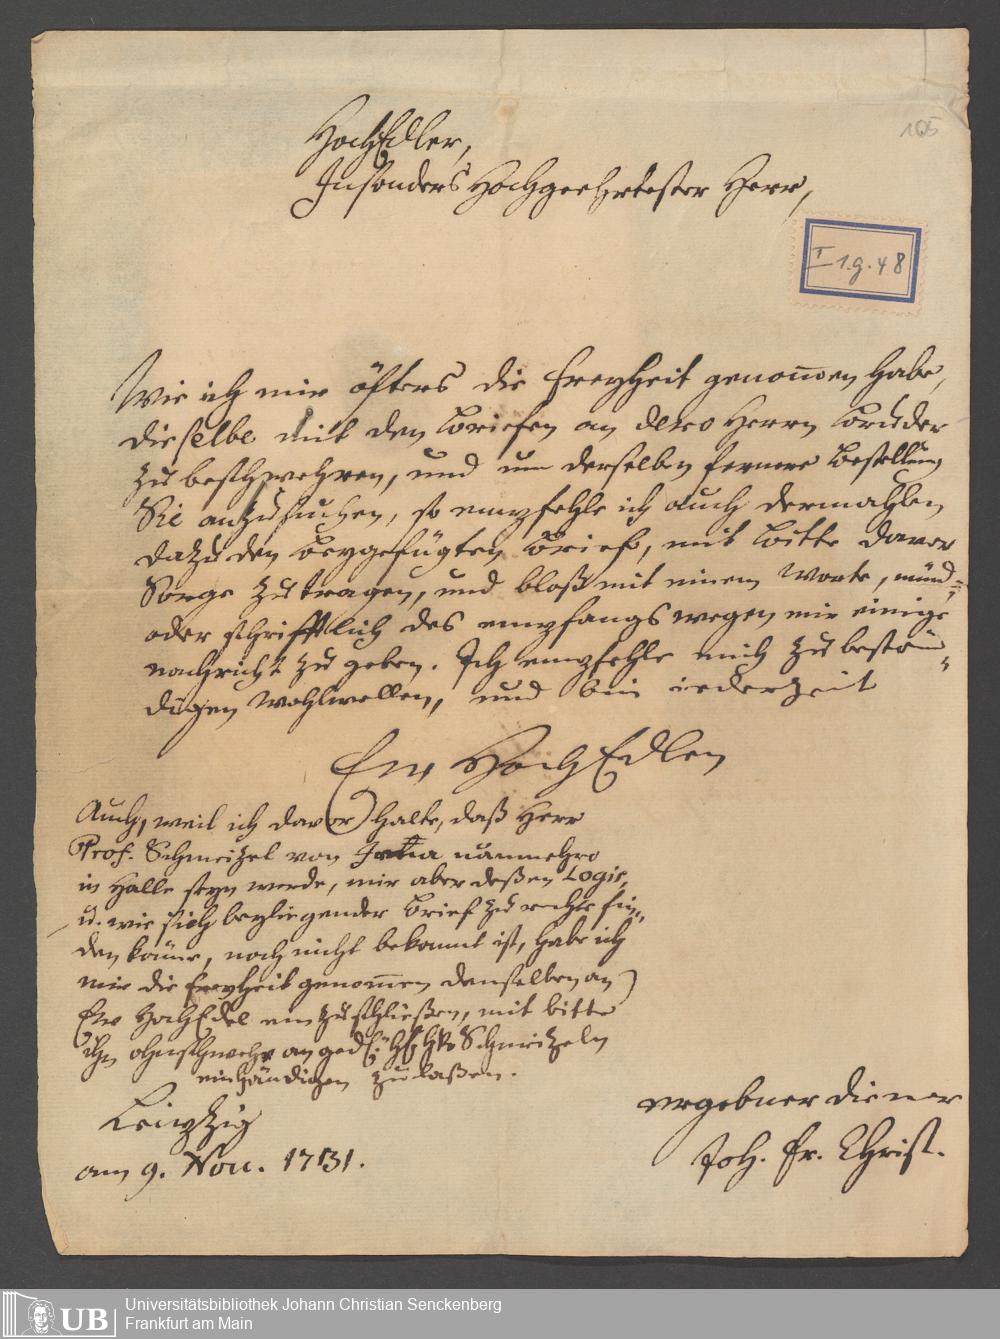 105
HochEdler,
Insonders Hochgeehrtester Herr,
I 1.g.48
Wie ich mir öffters die Freyheit genom̄en habe,
dieselbe mit den Briefen an dero Herrn Bruder
zu beschwehren, und um derselben fernere Bestellung
Sie anzusuchen, so empfehle ich auch dermahlen
dazu den beygefügten Brief, mit Bitte davor
Sorge zu tragen, und bloß mit einem Worte, münd-
oder schrifftlich des empfangs wegen mir einige
nachricht zu geben. Ich empfehle mich zu bestän-
digen Wohlwollen, und bin iederzeit
Ew HochEdlen
Auch, weil ich davor halte, daß Herr
Prof. Schmeitzel von Jena nunmehro
in Halle seyn werde, mir aber deßen Logis,
u. wie sich beyliegender Brief zu rechte fin-
den könne, noch nicht bekannt ist, habe ich
mir die Freyheit genom̄en denselben an
Ew HochEdel einzuschließen, mit bitte
ihn ohnschwehr an Schmeitzeln
einhändigen zu laßen.
Leipzig
am 9. Nov. 1731.
ergebner diener
Joh. Fr. Christ.
UB
Universitätsbibliothek Johann Christian Senckenberg
Frankfurt am Main